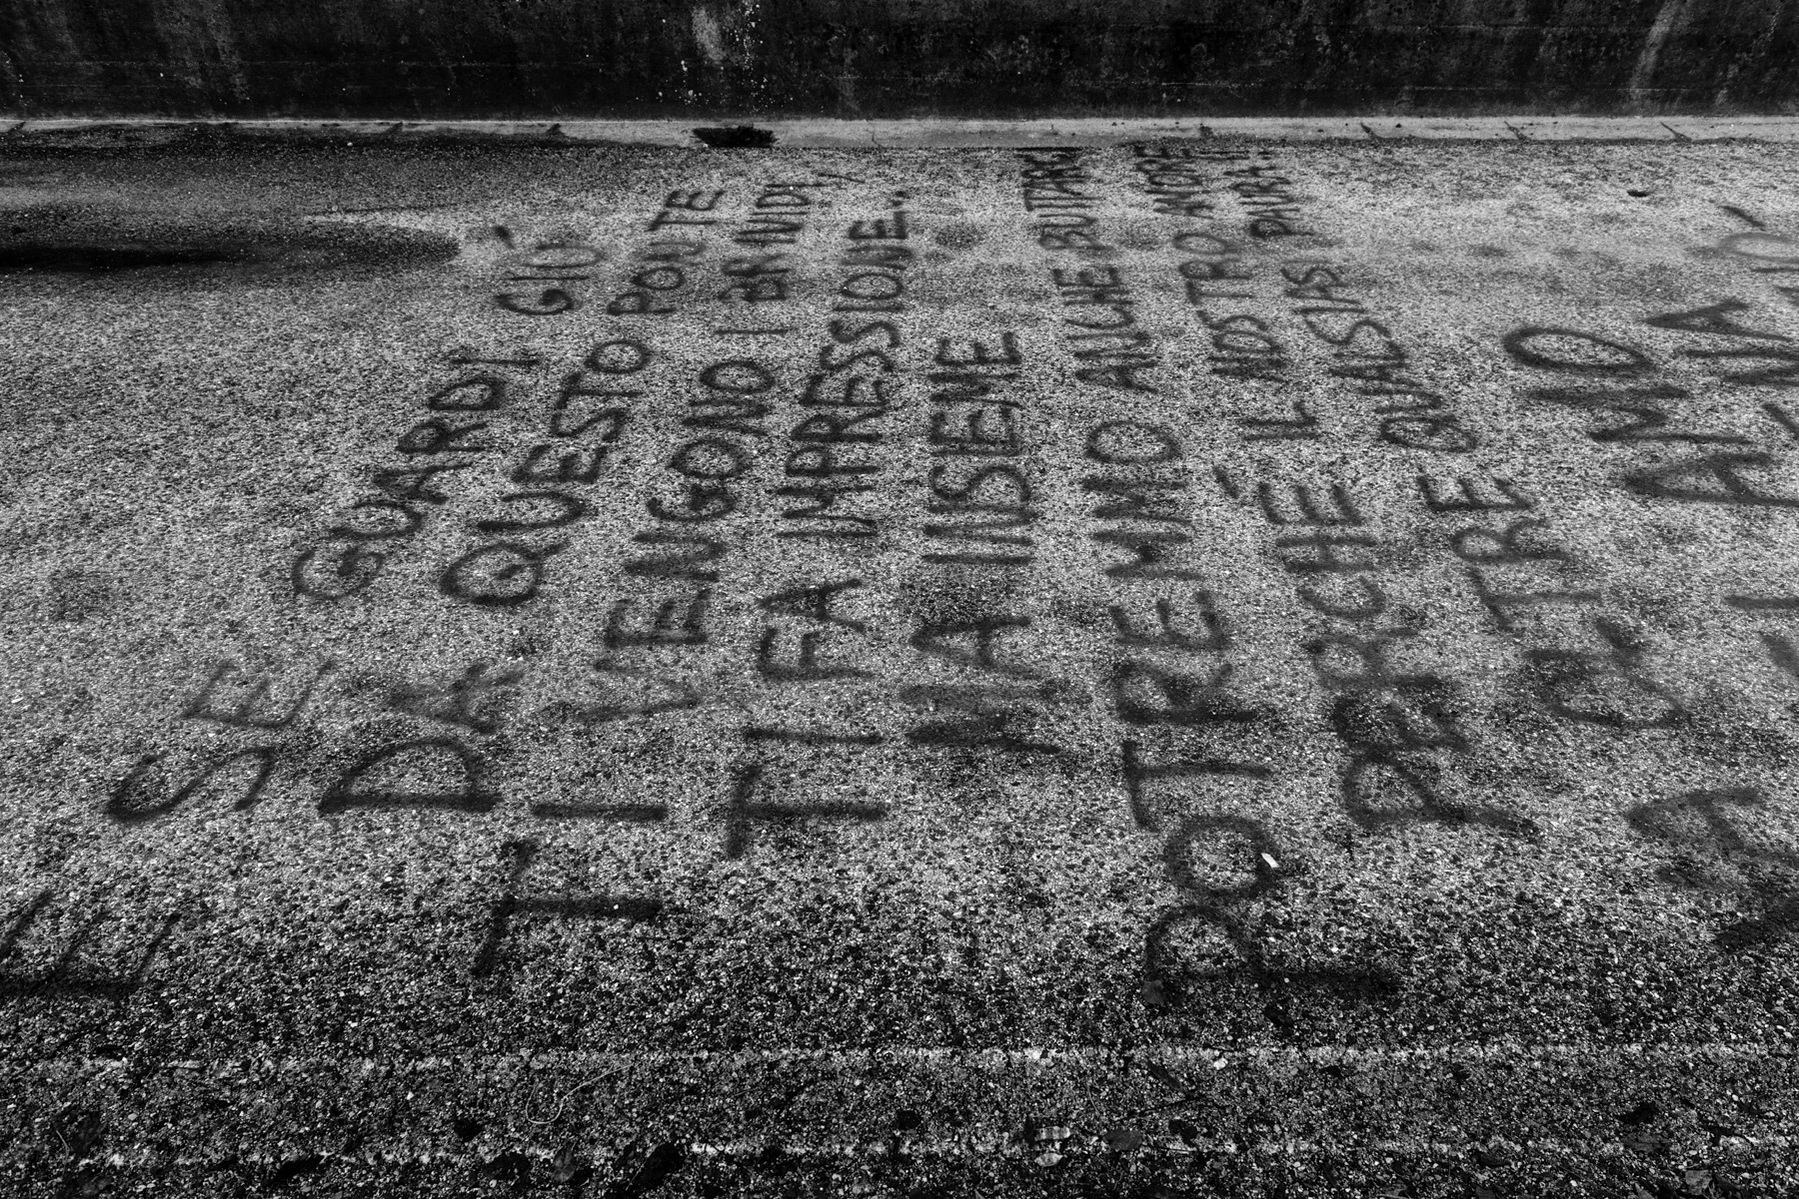 SE GUARDI GIÙ
DA QUESTO PONTE
TI VENGONO I BRIVIDI,
TI FA IMPRESSIONE...
MA INSIEME
POTREMMO ANCHE BUTTARCI
PERCHÉ IL NOSTRO AMORE
OLTRE QUALSIASI PAURA.
AMO